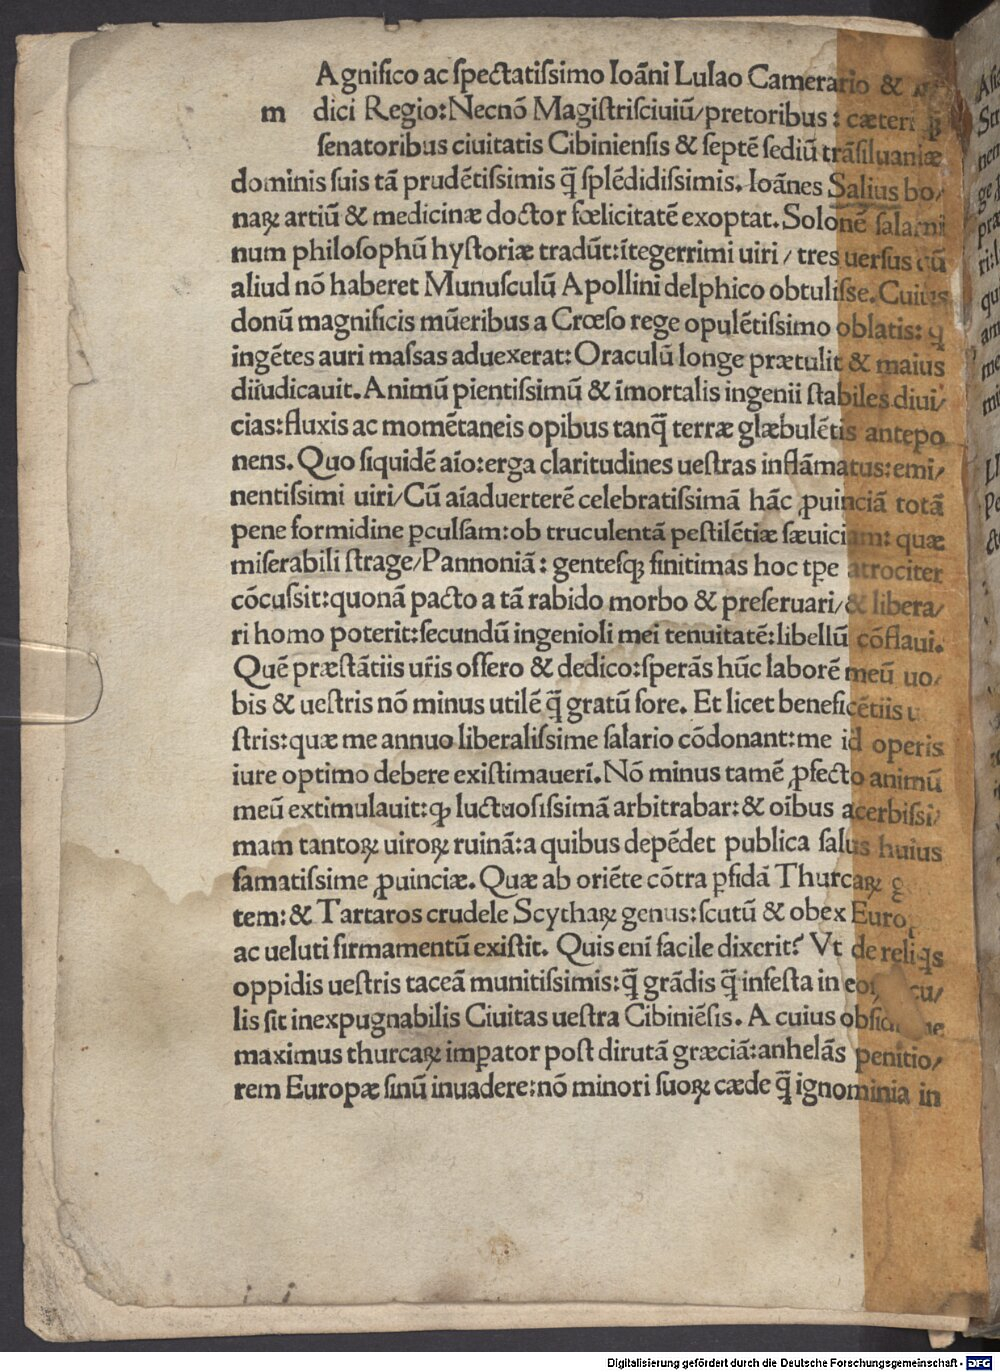 Agnifico ac ſpectatiſsimo Ioāni Lulao Camerario &
m dici Regio: Necnō Magiſtriſciuiū/pretoribus: cæteri
ſenatoribus ciuitatis Cibinienſis & ſeptē ſediū trāſiluaniæ
dominis ſuis tā prudētiſsimis q̄ ſplēdidiſsimis. Ioānes Salius bo/
naꝝ artiū & medicinæ doctor fœlicitatē exoptat. Solonē ſalami
num philoſophū hyſtoriæ tradūt: ītegerrimi uiri / tres uerſus cū
aliud nō haberet Munuſculū Apollini delphico obtuliſſe. Cuius
donū magnificis mūeribus a Crœſo rege opulētiſsimo oblatis: q
ingētes auri maſsas aduexerat: Oraculū longe prætulit & maius
diiudicauit. Animū pientiſsimū & īmortalis ingenii ſtabiles diui/
cias: fluxis ac momētaneis opibus tanq̄ terræ glæbulētis antepo
nens. Quo ſiquidē aīo: erga claritudines ueſtras inflāmatus: emi/
nentiſsimi uiri/Cū aīaduerterē celebratiſsimā hāc ꝓuinciā totā
pene formidine ꝑculſam: ob truculentā peſtilētiæ ſæuiciam: quæ
miſerabili ſtrage/Pannoniā: genteſqꝫ finitimas hoc tꝑe atrociter
cōcuſsit: quonā pacto a tā rabido morbo & preſeruari/& libera/
ri homo poterit: ſecundū ingenioli mei tenuitatē: libellū cōflaui.
Quē præſtātiis ur̄is offero & dedico: ſperās hūc laborē meū uo/
bis & ueſtris nō minus utilē q̄ gratū fore. Et licet beneficētiis u
ſtris: quæ me annuo liberaliſsime ſalario cōdonant: me id operis
iure optimo debere exiſtimauerī. Nō minus tamē ꝓfecto animū
meū extimulauit: ꝙ luctuoſiſsimā arbitrabar: & oībus acerbiſsi/
mam tantoꝝ uiroꝝ ruinā: a quibus depēdet publica ſalus huius
famatiſsime ꝓuinciæ. Quæ ab oriēte cōtra ꝑfidā Thurcaꝝ
tem: & Tartaros crudele Scythaꝝ genus: ſcutū & obex Europ
ac ueluti firmamentū exiſtit. Quis enī facile dixerit? Vt de reliqs
oppidis ueſtris taceā munitiſsimis: q̄ grādis q̄ infeſta in cu/
lis ſit inexpugnabilis Ciuitas ueſtra Cibiniēſis. A cuius
maximus thurcaꝝ imꝑator poſt dirutā græciā: anhelās penitio/
rem Europæ ſinū inuadere: nō minori ſuoꝝ cæde q̄ ignominia in
Digitalisierung gefördert durch die Deutsche Forschungsgemeinschaft - DFG